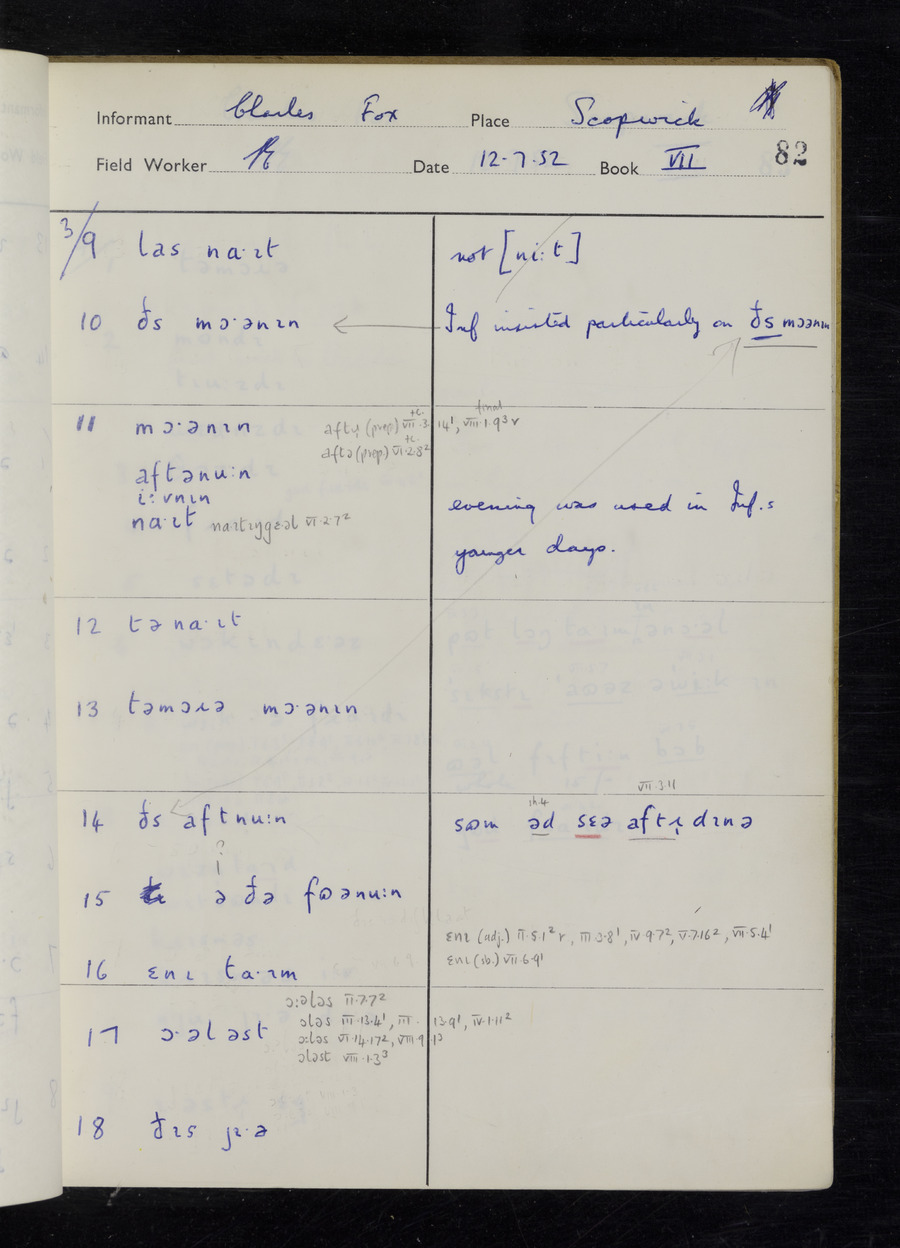 Informant Charles Fox Place Scopwick
Field Worker Date 12.7.52 Book VII 82
3/9 las na·ɪt not [ni:t]
10 ðs mɔ·ənɪn Inf insisted particularly on ðs mɔənɪn
11 mɔ·ənɪn
aftəɹ (prep) VII.3.14¹, VIII.1.9³ r
aftə (prep) VI.2.8²
aftənu:n
i:vnɪn evening was used in Inf.s
na·ɪt naɪtɪŋgɛəl VI.2.7² younger days.
12 tə na·ɪt
13 təmɔɹə mɔ·ənɪn
VII.3.11
14 ðs aftnu:n sɷm əd sɛə aftɹ̩ dɪnə
15 ə ðə fɷənu:n
ɛnɪ (adj.) II.5.1² r, III.3.8¹, IV.9.7², V.7.16², VII.5.4¹
ɛnɪ (sb.) VII.6.9¹
16 ɛnɪ ta·ɪm
ɔ:ələs II.7.7²
ɔləs III.13.4¹, III.13.9¹, IV.1.11²
17 ɔ·ələst ɔ:ləs VI.14.17², VIII.9.1³
ɔləst VIII.1.3³
18 ðɪs jɪ·ə